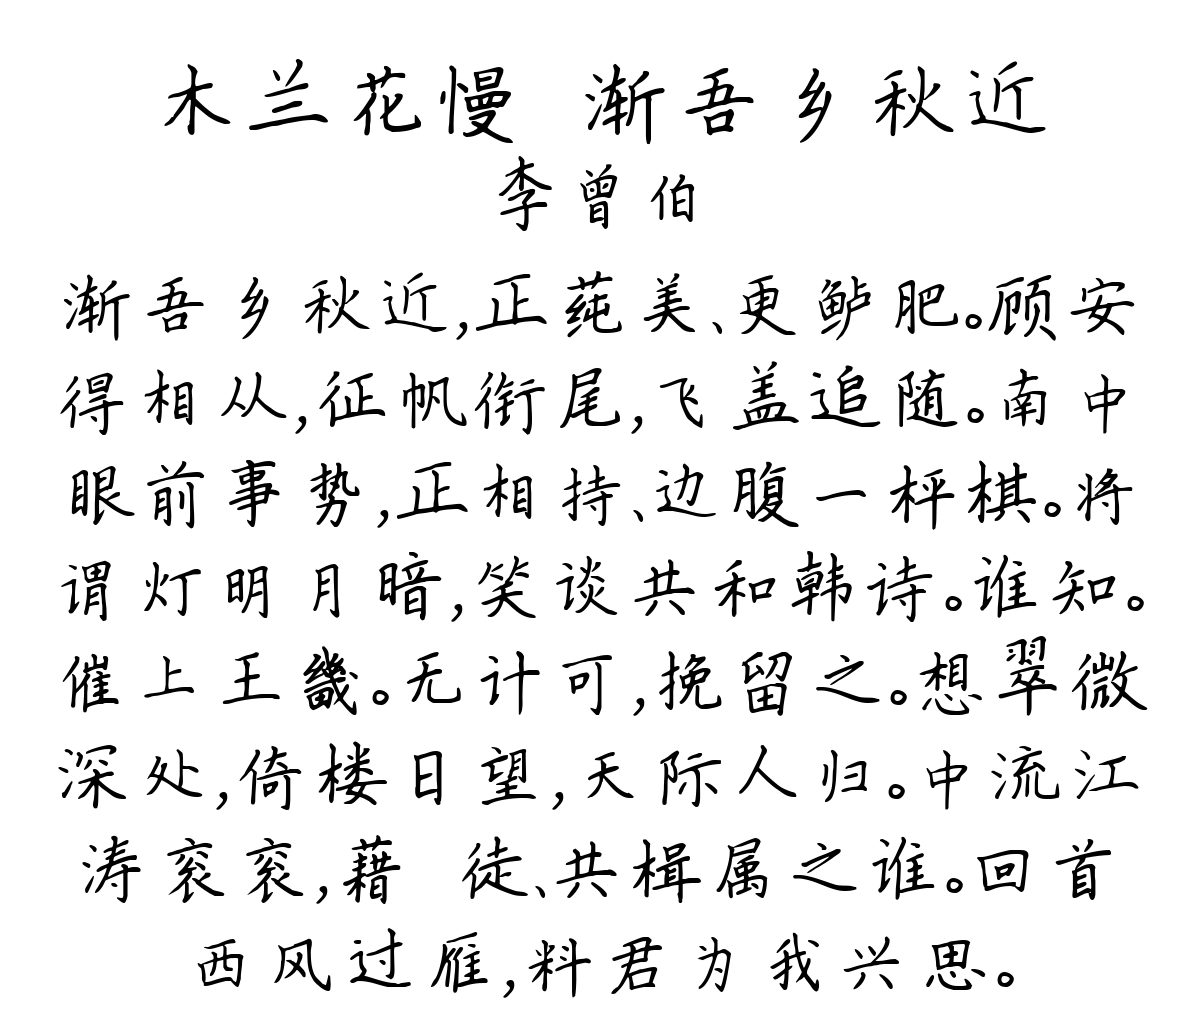 木兰花慢 渐吾乡秋近
李曾伯
渐吾乡秋近,正莼美、更鲈肥。顾安
得相从,征帆衔尾,飞盖追随。南中
眼前事势,正相持、边腹一枰棋。将
谓灯明月暗,笑谈共和韩诗。谁知。
催上王畿。无计可,挽留之。想翠微
深处,倚楼日望,天际人归。中流江
涛衮衮,藉 徒、共楫属之谁。回首
西风过雁,料君为我兴思。